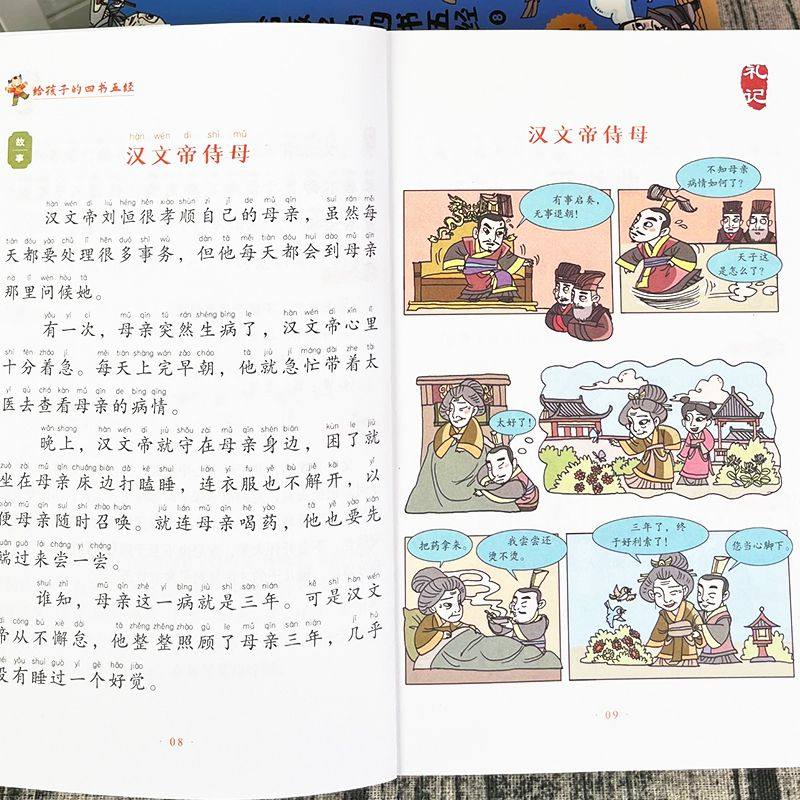 四书五经
8
给孩子的四书五经
故事
hàn wén dì shì mǔ
汉文帝侍母
hàn wén dì liú héng hěn xiào shùn zì jǐ de mǔ qīn suī rán měi
汉文帝刘恒很孝顺自己的母亲，虽然每
tiān dōu yào chǔ lǐ hěn duō shì wù dàn tā měi tiān dōu huì dào mǔ qīn
天都要处理很多事务，但他每天都会到母亲
nà lǐ wèn hòu tā
那里问候她。
yǒu yí cì mǔ qīn tū rán shēng bìng le hàn wén dì xīn lǐ
有一次，母亲突然生病了，汉文帝心里
shí fēn zháo jí měi tiān shàng wán zǎo cháo tā jiù jí máng dài zhe tài
十分着急。每天上完早朝，他就急忙带着太
yī qù chá kàn mǔ qīn de bìng qíng
医去查看母亲的病情。
wǎn shang hàn wén dì jiù shǒu zài mǔ qīn shēn biān kùn le jiù
晚上，汉文帝就守在母亲身边，困了就
zuò zài mǔ qīn chuáng biān dǎ kē shuì lián yī fu yě bù jiě kāi yǐ
坐在母亲床边打瞌睡，连衣服也不解开，以
biàn mǔ qīn suí shí zhào huàn jiù lián mǔ qīn hē yào tā yě yào xiān
便母亲随时召唤。就连母亲喝药，他也要先
duān guò lái cháng yì cháng
端过来尝一尝。
shuí zhī mǔ qīn zhè yí bìng jiù shì sān nián kě shì hàn wén
谁知，母亲这一病就是三年。可是汉文
cóng bú xiè dài tā zhěng zhěng zhào gù le mǔ qīn sān nián jī hū
帝从不懈怠，他整整照顾了母亲三年，几乎
méi yǒu shuì guò yí gè hǎo jiào
没有睡过一个好觉。
· 08 ·
礼记
汉文帝侍母
有事启奏，
无事退朝！
不知母亲
病情如何了？
天子这
是怎么了？
太好了！
把药拿来。
我尝尝还
烫不烫。
三年了，终
于好利索了！
您当心脚下。
· 09 ·